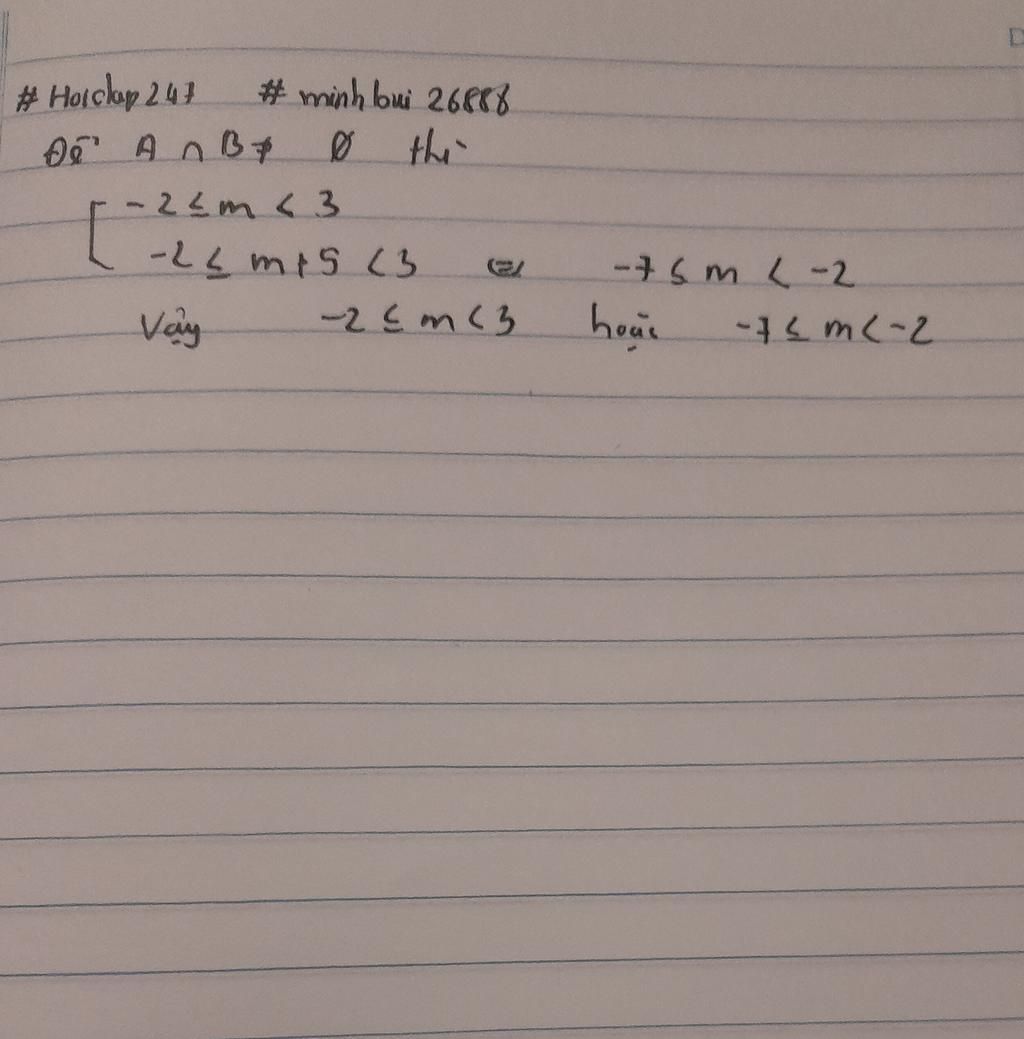 # Hoidap247 # minhbui 26888
Để A ∩ B ≠ Ø thì
[ -2 ≤ m < 3
-2 ≤ m+5 < 3 ⇔ -7 ≤ m < -2
Vậy -2 ≤ m < 3 hoặc -7 ≤ m < -2
D